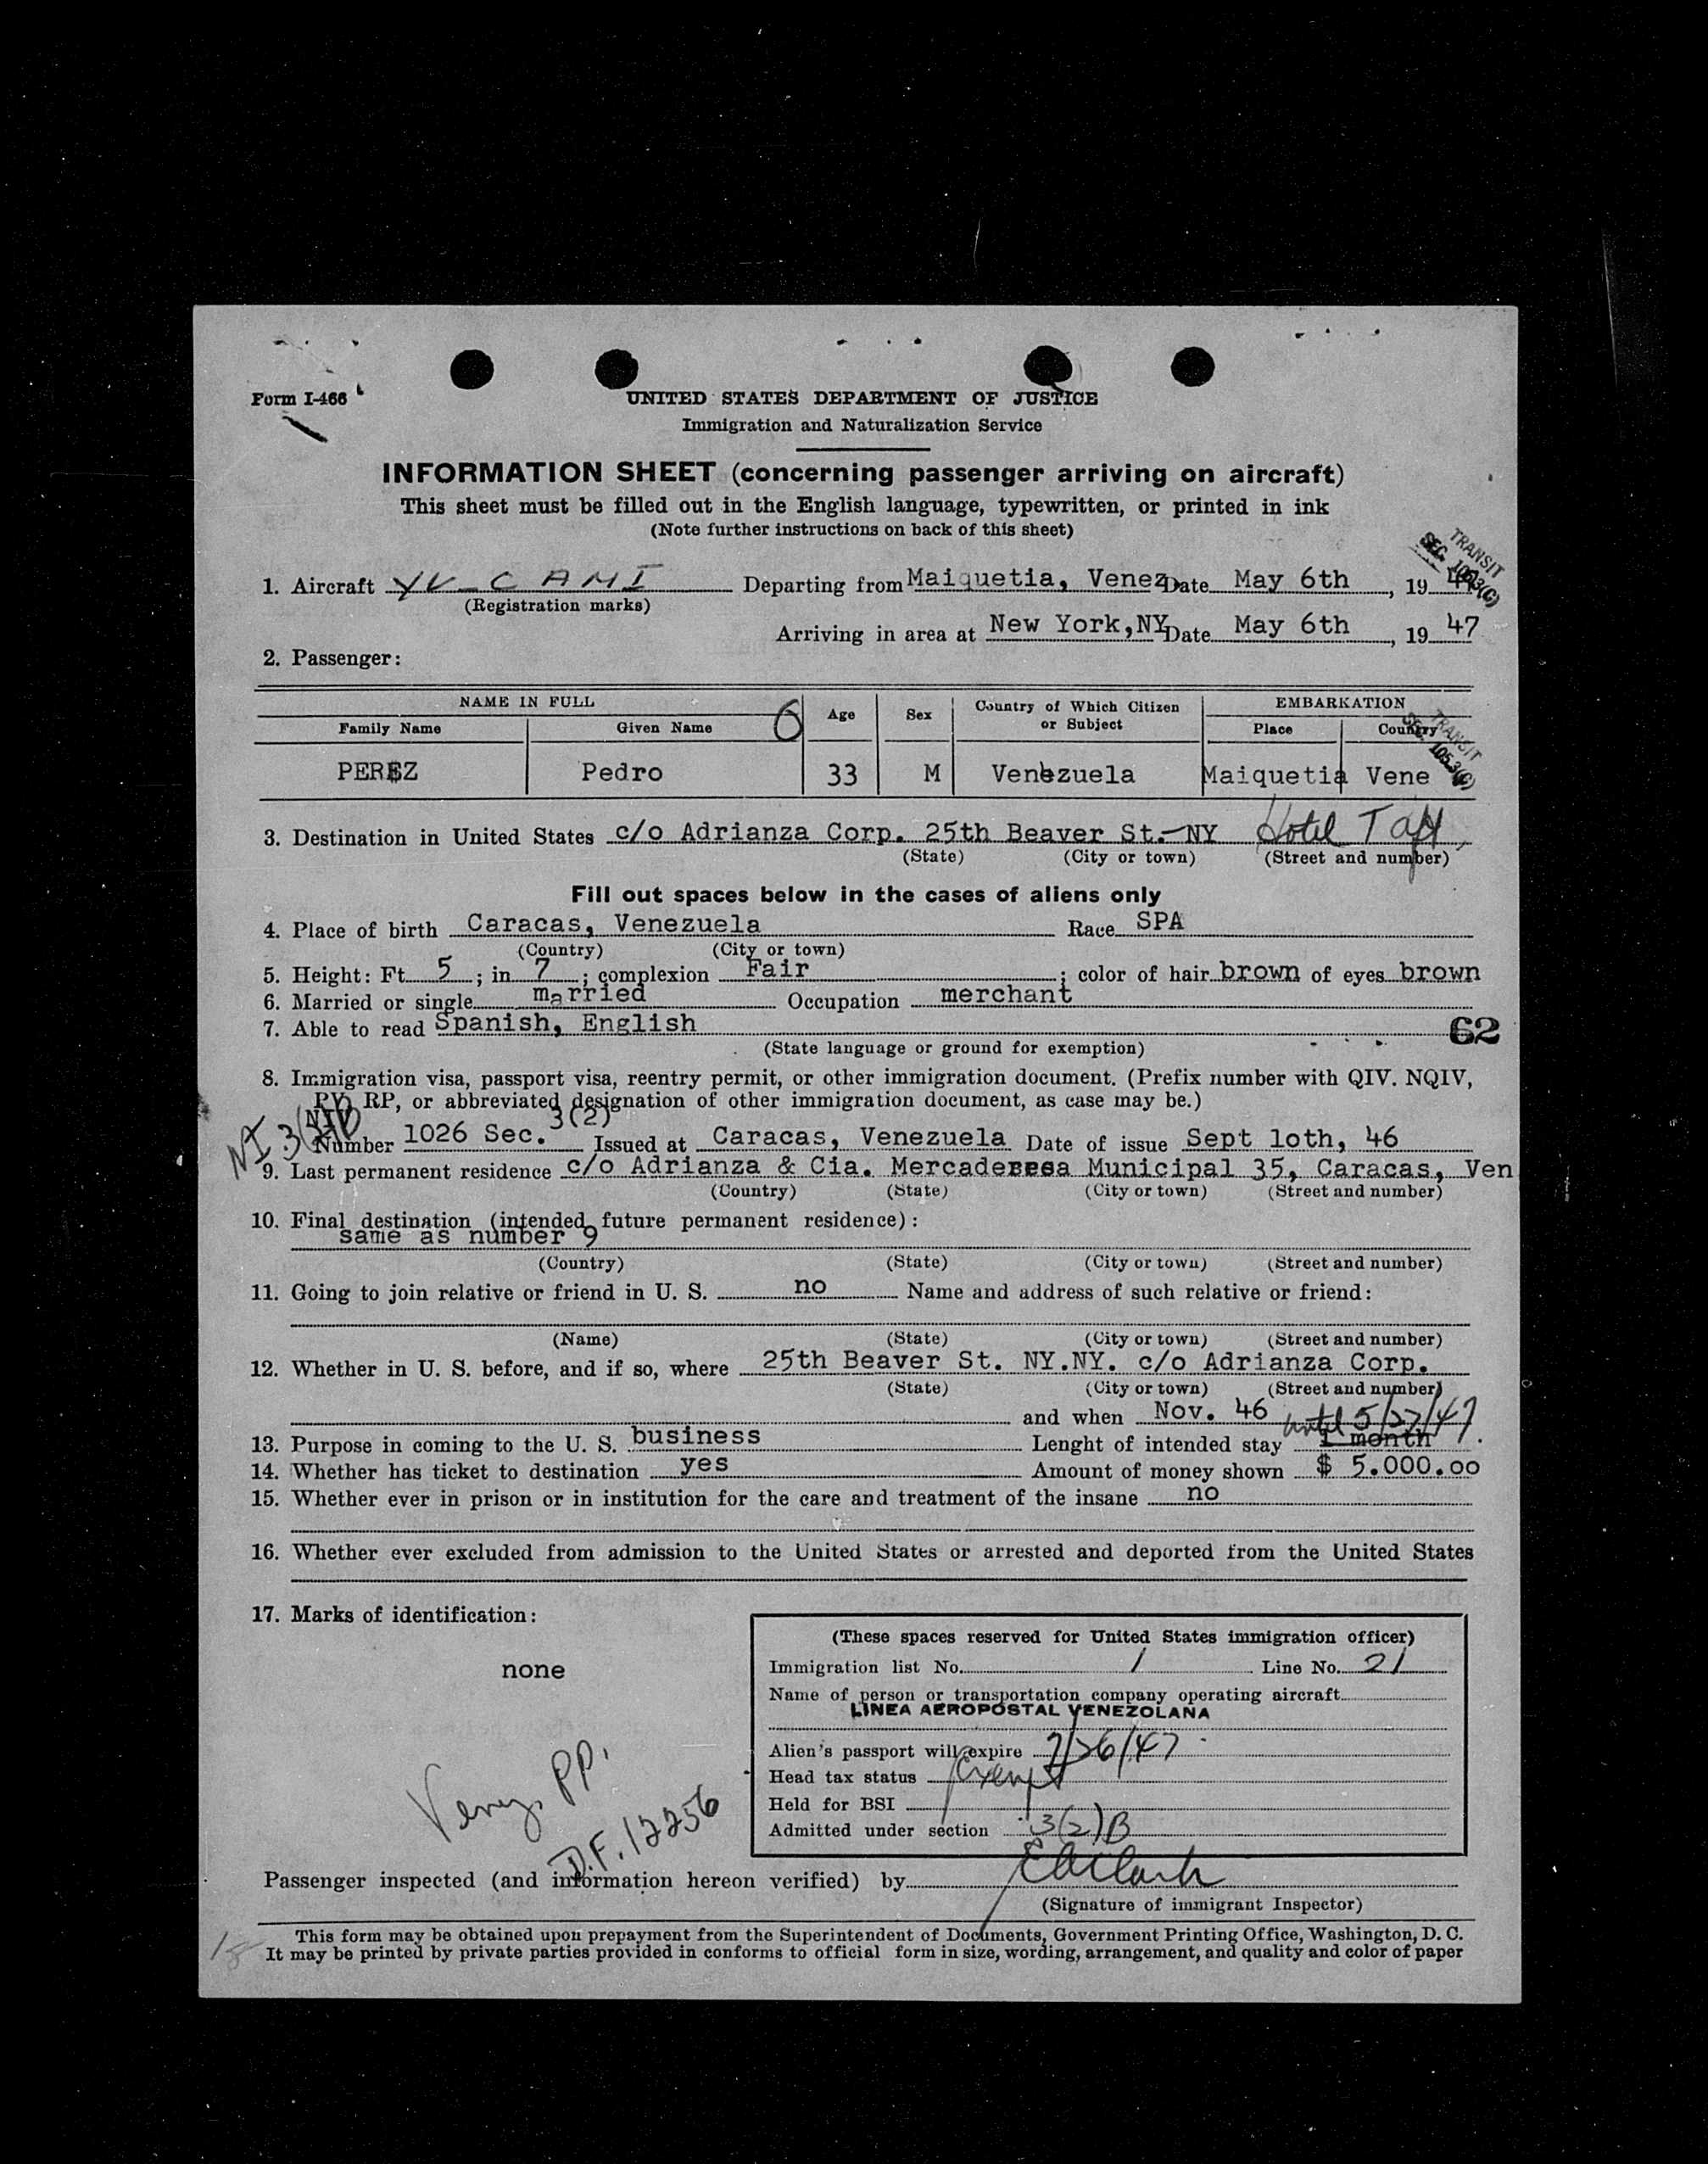 Form I-466
UNITED STATES DEPARTMENT OF JUSTICE
Immigration and Naturalization Service
INFORMATION SHEET (concerning passenger arriving on aircraft)
This sheet must be filled out in the English language, typewritten, or printed in ink
(Note further instructions on back of this sheet)
TRANSIT
SEC. 105.3(C)
1. Aircraft YV-C AMI Departing from Maiquetia, Venez Date May 6th, 19
(Registration marks)
Arriving in area at New York,NY Date May 6th, 19 47
2. Passenger:
NAME IN FULL 6 Age Sex Country of Which Citizen or Subject EMBARKATION
Family Name Given Name Place Country
TRANSIT
SEC. 105.3(C)
PEREZ Pedro 33 M Venezuela Maiquetia Vene
3. Destination in United States c/o Adrianza Corp. 25th Beaver St.-NY Hotel Taft,
(State) (City or town) (Street and number)
Fill out spaces below in the cases of aliens only
4. Place of birth Caracas, Venezuela Race SPA
(Country) (City or town)
5. Height: Ft. 5 ; in 7 ; complexion Fair ; color of hair brown of eyes brown
6. Married or single married Occupation merchant
7. Able to read Spanish, English
62
(State language or ground for exemption)
8. Immigration visa, passport visa, reentry permit, or other immigration document. (Prefix number with QIV. NQIV,
PV, RP, or abbreviated designation of other immigration document, as case may be.)
Number 1026 Sec. 3(2) Issued at Caracas, Venezuela Date of issue Sept 1oth, 46
9. Last permanent residence c/o Adrianza & Cia. Municipal 35, Caracas, Ven
(Country) (State) (City or town) (Street and number)
10. Final destination (intended future permanent residence):
same as number 9
(Country) (State) (City or town) (Street and number)
11. Going to join relative or friend in U. S. no Name and address of such relative or friend:
(Name) (State) (City or town) (Street and number)
12. Whether in U. S. before, and if so, where 25th Beaver St. NY.NY. c/o Adrianza Corp.
(State) (City or town) (Street and number)
and when Nov. 46 until 5/27/47
13. Purpose in coming to the U. S. business Lenght of intended stay 1 month
14. Whether has ticket to destination yes Amount of money shown $ 5.000.oo
15. Whether ever in prison or in institution for the care and treatment of the insane no
16. Whether ever excluded from admission to the United States or arrested and deported from the United States
17. Marks of identification:
none
Venez. PP.
D.F. 12256
(These spaces reserved for United States immigration officer)
Immigration list No. 1 Line No. 21
Name of person or transportation company operating aircraft
LINEA AEROPOSTAL VENEZOLANA
Alien's passport will expire 7/26/47
Head tax status Exempt
Held for BSI
Admitted under section 3(2)B
Passenger inspected (and information hereon verified) by
(Signature of immigrant Inspector)
This form may be obtained upon prepayment from the Superintendent of Documents, Government Printing Office, Washington, D. C.
It may be printed by private parties provided in conforms to official form in size, wording, arrangement, and quality and color of paper